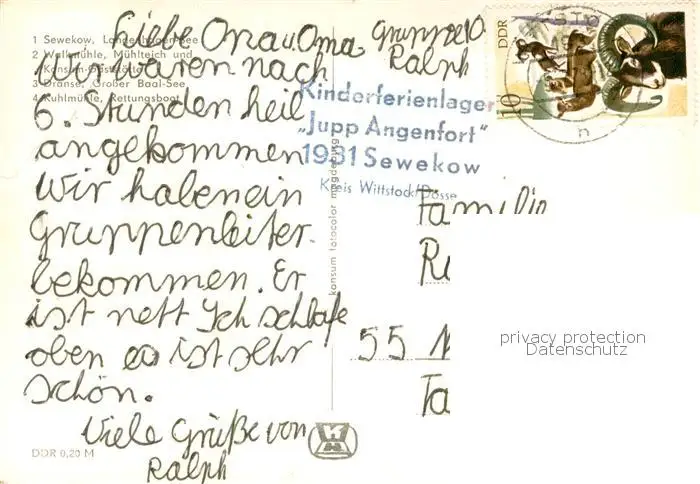 1 Sewekow, Langenhagen-See
2 Wallmühle, Mühlteich und
Konsum-Gaststätte
3 Dranse, Großer Baal-See
4 Kuhlmühle, Rettungsboot
Liebe Opa u. Oma
Wir waren nach
6. Stunden heil
angekommen
Wir haben ein
Gruppenleiter
bekommen. Er
ist nett Ich schlafe
oben es ist sehr
schön.
Viele Grüße von
Ralph
DDR 0,20 M
konsum fotocolor magdeburg
Gruppe 10
Ralph
Kinderferienlager
„Jupp Angenfort"
1981 Sewekow
Kreis Wittstock/Dosse
DDR
10
Familie
55
privacy protection
Datenschutz